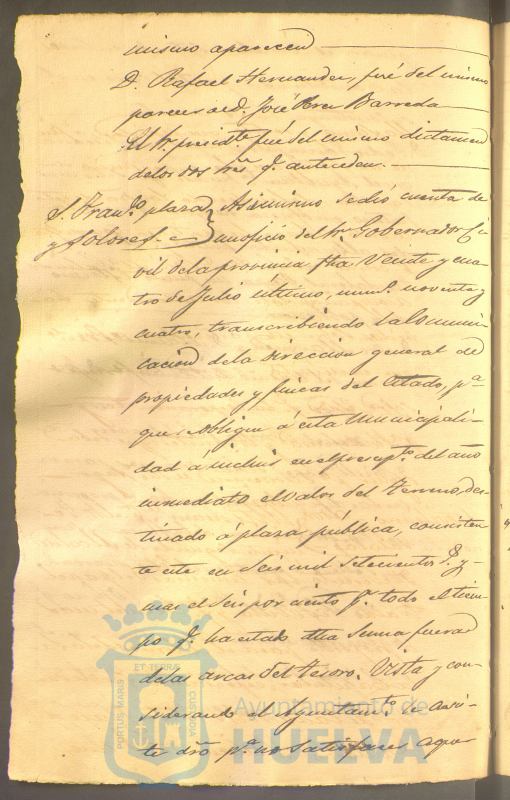 mismo aparecen
D. Rafael Hernandez, fué del mismo
parecer al d. José Barreda
El Sr. presidte fué del mismo dictamen
delos dos Sres q. anteceden.
S. Franco. plaza
y solares
Asimismo se dió cuenta de
un oficio del Sr. Gobernador Ci-
vil dela provincia fha Veinte y cua-
tro de Julio último, numo. noventa y
cuatro, transcribiendo la Comuni-
cacion dela Direccion general de
propiedades y fincas del Estado, pa.
que obligue á esta Municipali-
dad á incluir en el presupto. del año
inmediato el valor del Terreno, des-
tinado á plaza pública, consisten-
te este en Seis mil Setecientos y
mas el Seis por ciento pr. todo el tiem-
po q. ha estado dha Suma fuera
delas arcas del tesoro. Vista y con-
siderando el Ayuntamto. le asis-
te dro pa. no satisfacer aque
Ayuntamiento de
HUELVA
PORTUS MARIS
ET TERRAE
CUSTODIA